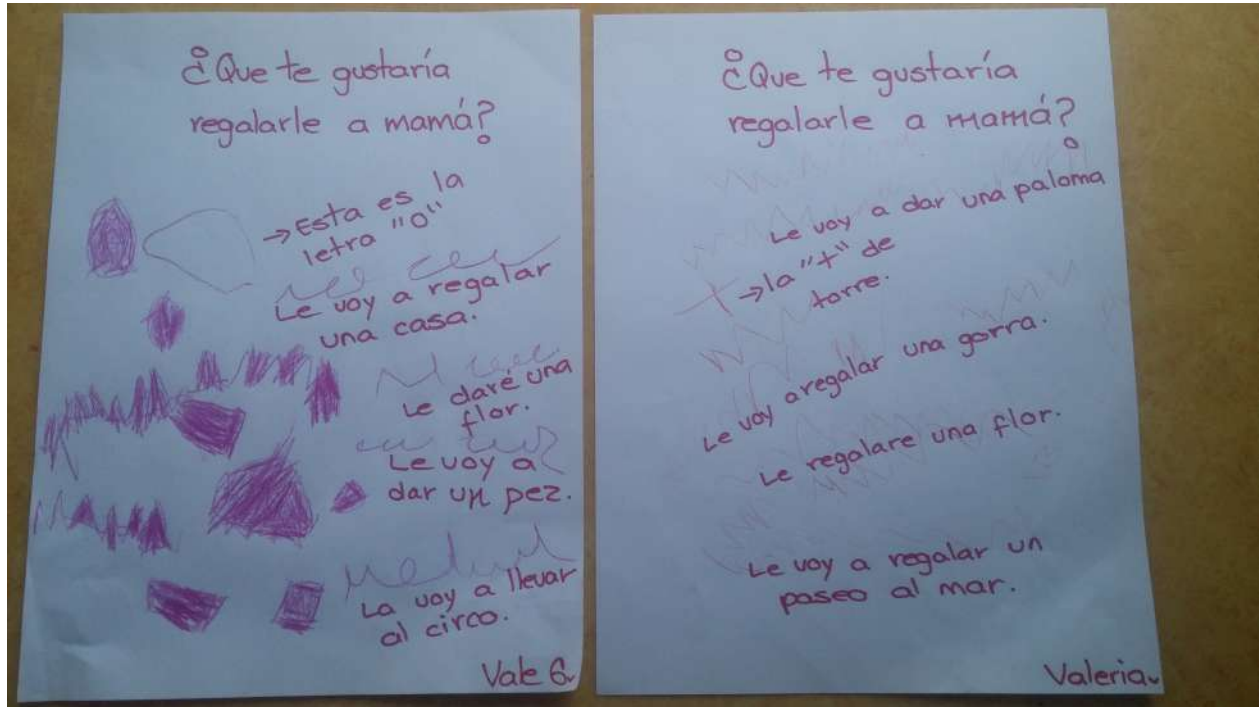 ¿Que te gustaría
regalarle a mamá?
→Esta es la
letra "O"
Le voy a regalar
una casa.
Le daré una
flor.
Le voy a
dar un pez.
La voy a llevar
al circo.
Vale G.
¿Que te gustaría
regalarle a mamá?
Le voy a dar una paloma
→la "t" de
torre.
Le voy aregalar una gorra.
Le regalare una flor.
Le voy a regalar un
paseo al mar.
Valeria.